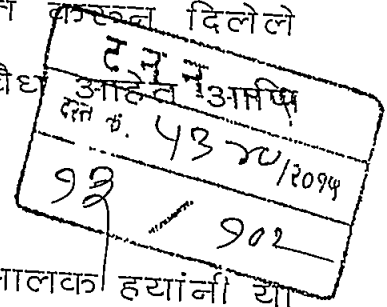 करून दिलेले
ट न न
आहेत आणि
दस्त क्र. ५३४०/२०१५
१३ / १०२
मालक हयांनी या